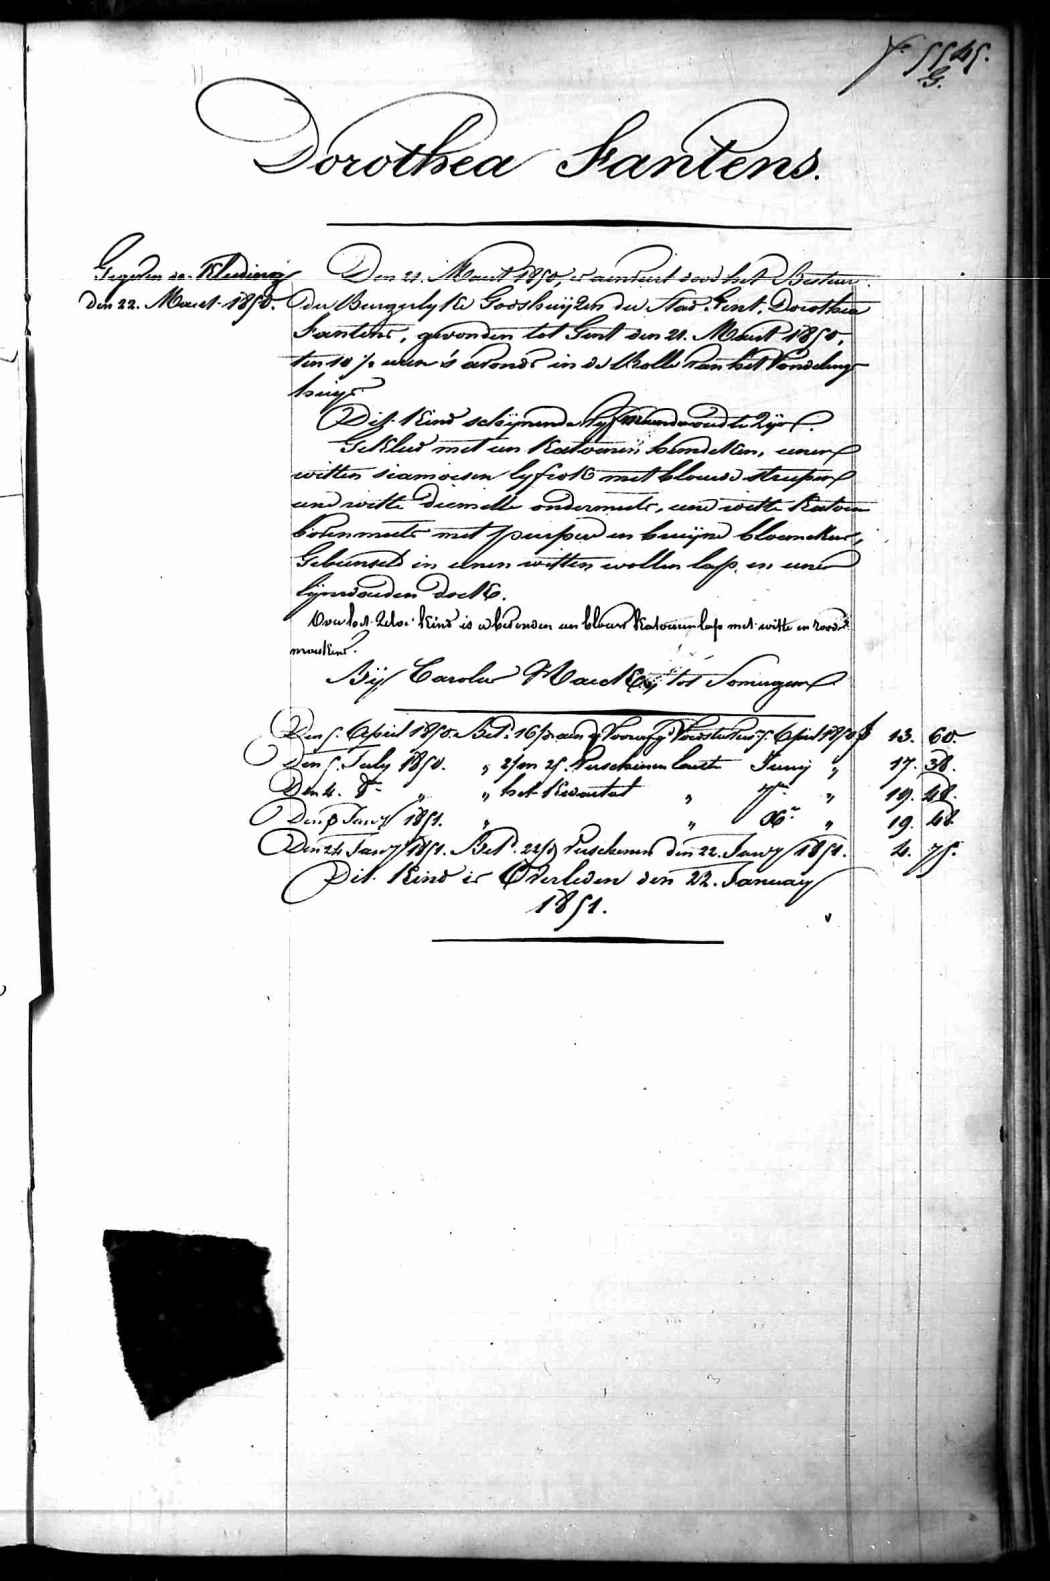 F. 5545.
G.
Dorothea Fantens.
Gegeven de Kleding
den 22. Maert 1850.
Den 21. Maert 1850, is aenveert door het Bestuer
der Burgerlyke Godshuijzen der Stad Gent, Dorothea
Fantens, gevonden tot Gent den 21. Maert 1850,
ten 10 ½ uren 's avonds in de Rolle van het Vondeling
huijs
Dit Kind schijnende vyf maenden oud te zijn.
Gekleed met een Katoenen hemdeken, eenen
witten siamoisen lyfrok met blauwe streepen
eene witte diemitte ondermuts, eene witte Katoen
bovenmuts met purper en bruijne bloemekens,
Gebunseld in eenen witten wollen lap en eenen
lynwaeden doek.
Over het zelve Kind is er bevonden een blauw Katoenen lap met witte en roode
mouskens.
Bij Carolus Maeck tot Somergem
Den 5. April 1850. Bet. 16/ aen Voorwg Verstreken 5. April 1850 f 13. 60.
Den 5. July 1850. " 2/m 25. Verschenen laeste Junij " 17. 38.
Den 4. 8.r " " het Kwartael " 7.r " 19. 48.
Den 8 Jany 1851. " " X.r " 19. 48.
Den 24 Jany 1851. Bet. 22/ Verschenen den 22. Jany 1851. 4. 75.
Dit Kind is Overleden den 22. January
1851.